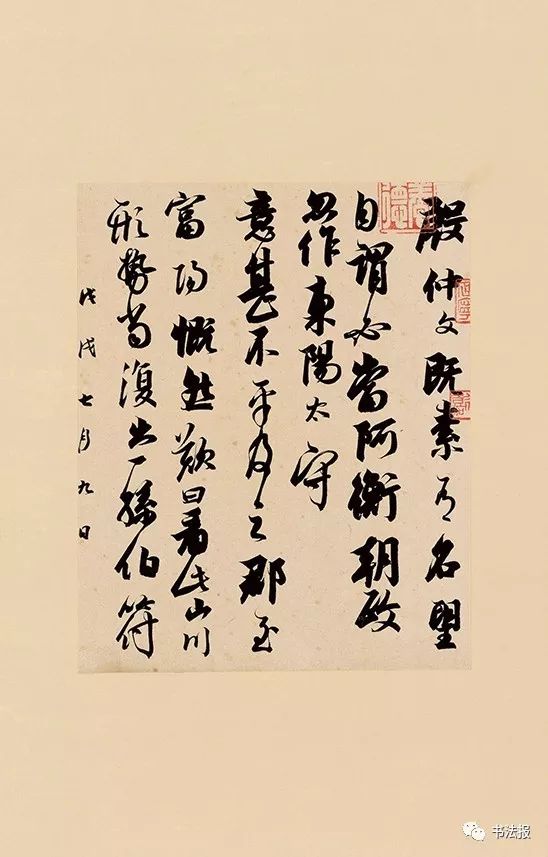 殷仲文既素有名望
自謂必當阿衡朝政
忽作東陽太守
意甚不平及之郡至
富陽慨然歎曰看此山川
形勢當復出一孫伯符
戊戌七月九日
书法报